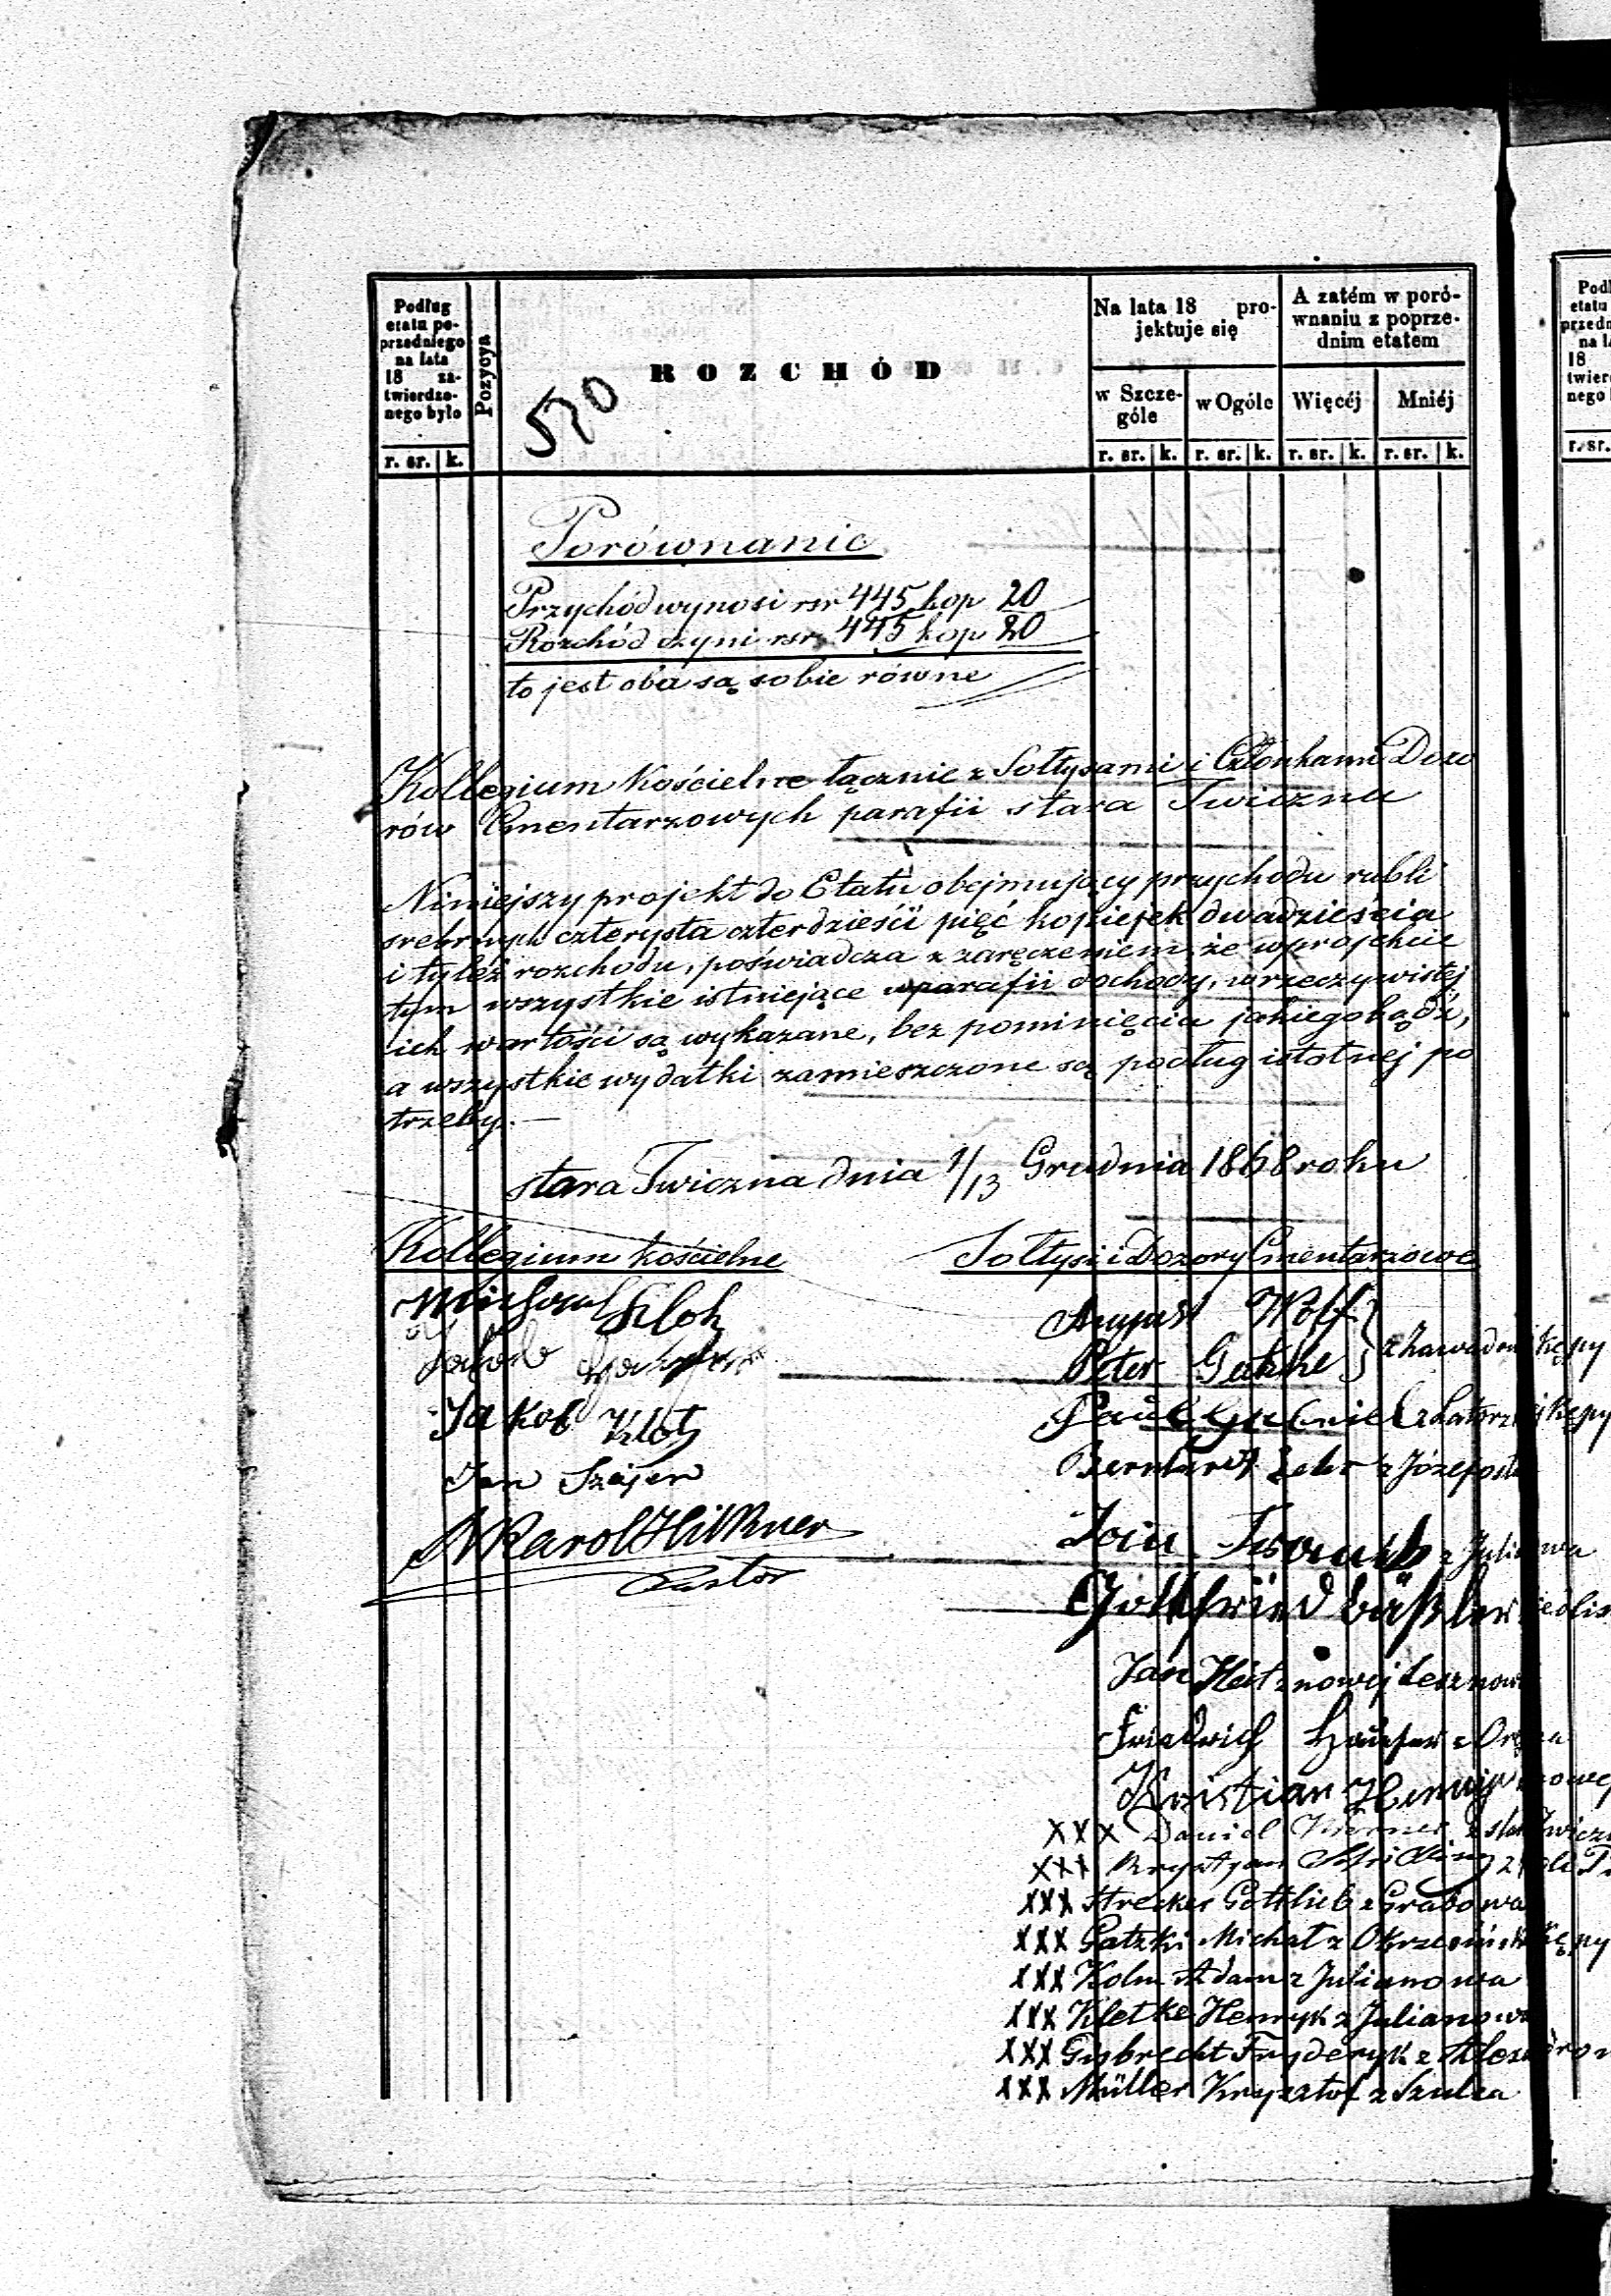 Podług etatu po-
przedniego
na lata
18 za-
twierdzo-
nego było
r. sr. k.
Pozycya
ROZCHÓD
570
Na lata 18 pro-
jektuje się
w Szcze-
góle
w Ogóle
r. sr. k. r. sr. k.
A zatém w poró-
wnaniu z poprze-
dnim etatem
Więcéj
Mniéj
r. sr. k. r. sr. k.
Porównanie
Przychód wynosi rsr 445 kop 20
Rozchód czyni rsr 445 kop 20
to jest oba są sobie równe
Kollegium Kościelne łącznie z Sołtysami i Członkami Dozo
rów Cmentarzowych parafii stara Iwiczna
Niniejszy projekt do Etatu obejmujący przychodu rubli
srebrnych czterysta czterdzieści pięć kopiejek dwadzieścia
i tyleż rozchodu, poświadcza z zaręczeniem, że w projekcie
tym wszystkie istniejące w parafii dochody, w rzeczywistej
ich wartości są wykazane, bez pominięcia jakiegobądź,
a wszystkie wydatki zamieszczone są podług istotnej po
trzeby.
stara Iwiczna dnia 1/13 Grudnia 1868 roku
Kollegium kościelne
Sołtysi i Dozory Cmentarzowe
Jakob
Jakob Klotz
Jan Szejer
Karol
Pastor
August Wolf
Peter Gatzke
z Zawadowskiej Kępy
Paul
Bernhard
Gottfried
Jan z nowej Lesznowoli
Friedrich
Kristian
XXX Daniel
XXX Krystyan
XXX Strecker Gottlieb z Grabowa
XXX Gatzki Michał z Kępy
XXX Kolm Adam z Julianowa
XXX Kletke Henryk z Julianowa
XXX Gysbrecht Fryderyk z
XXX Müller Krysztof z Szulca